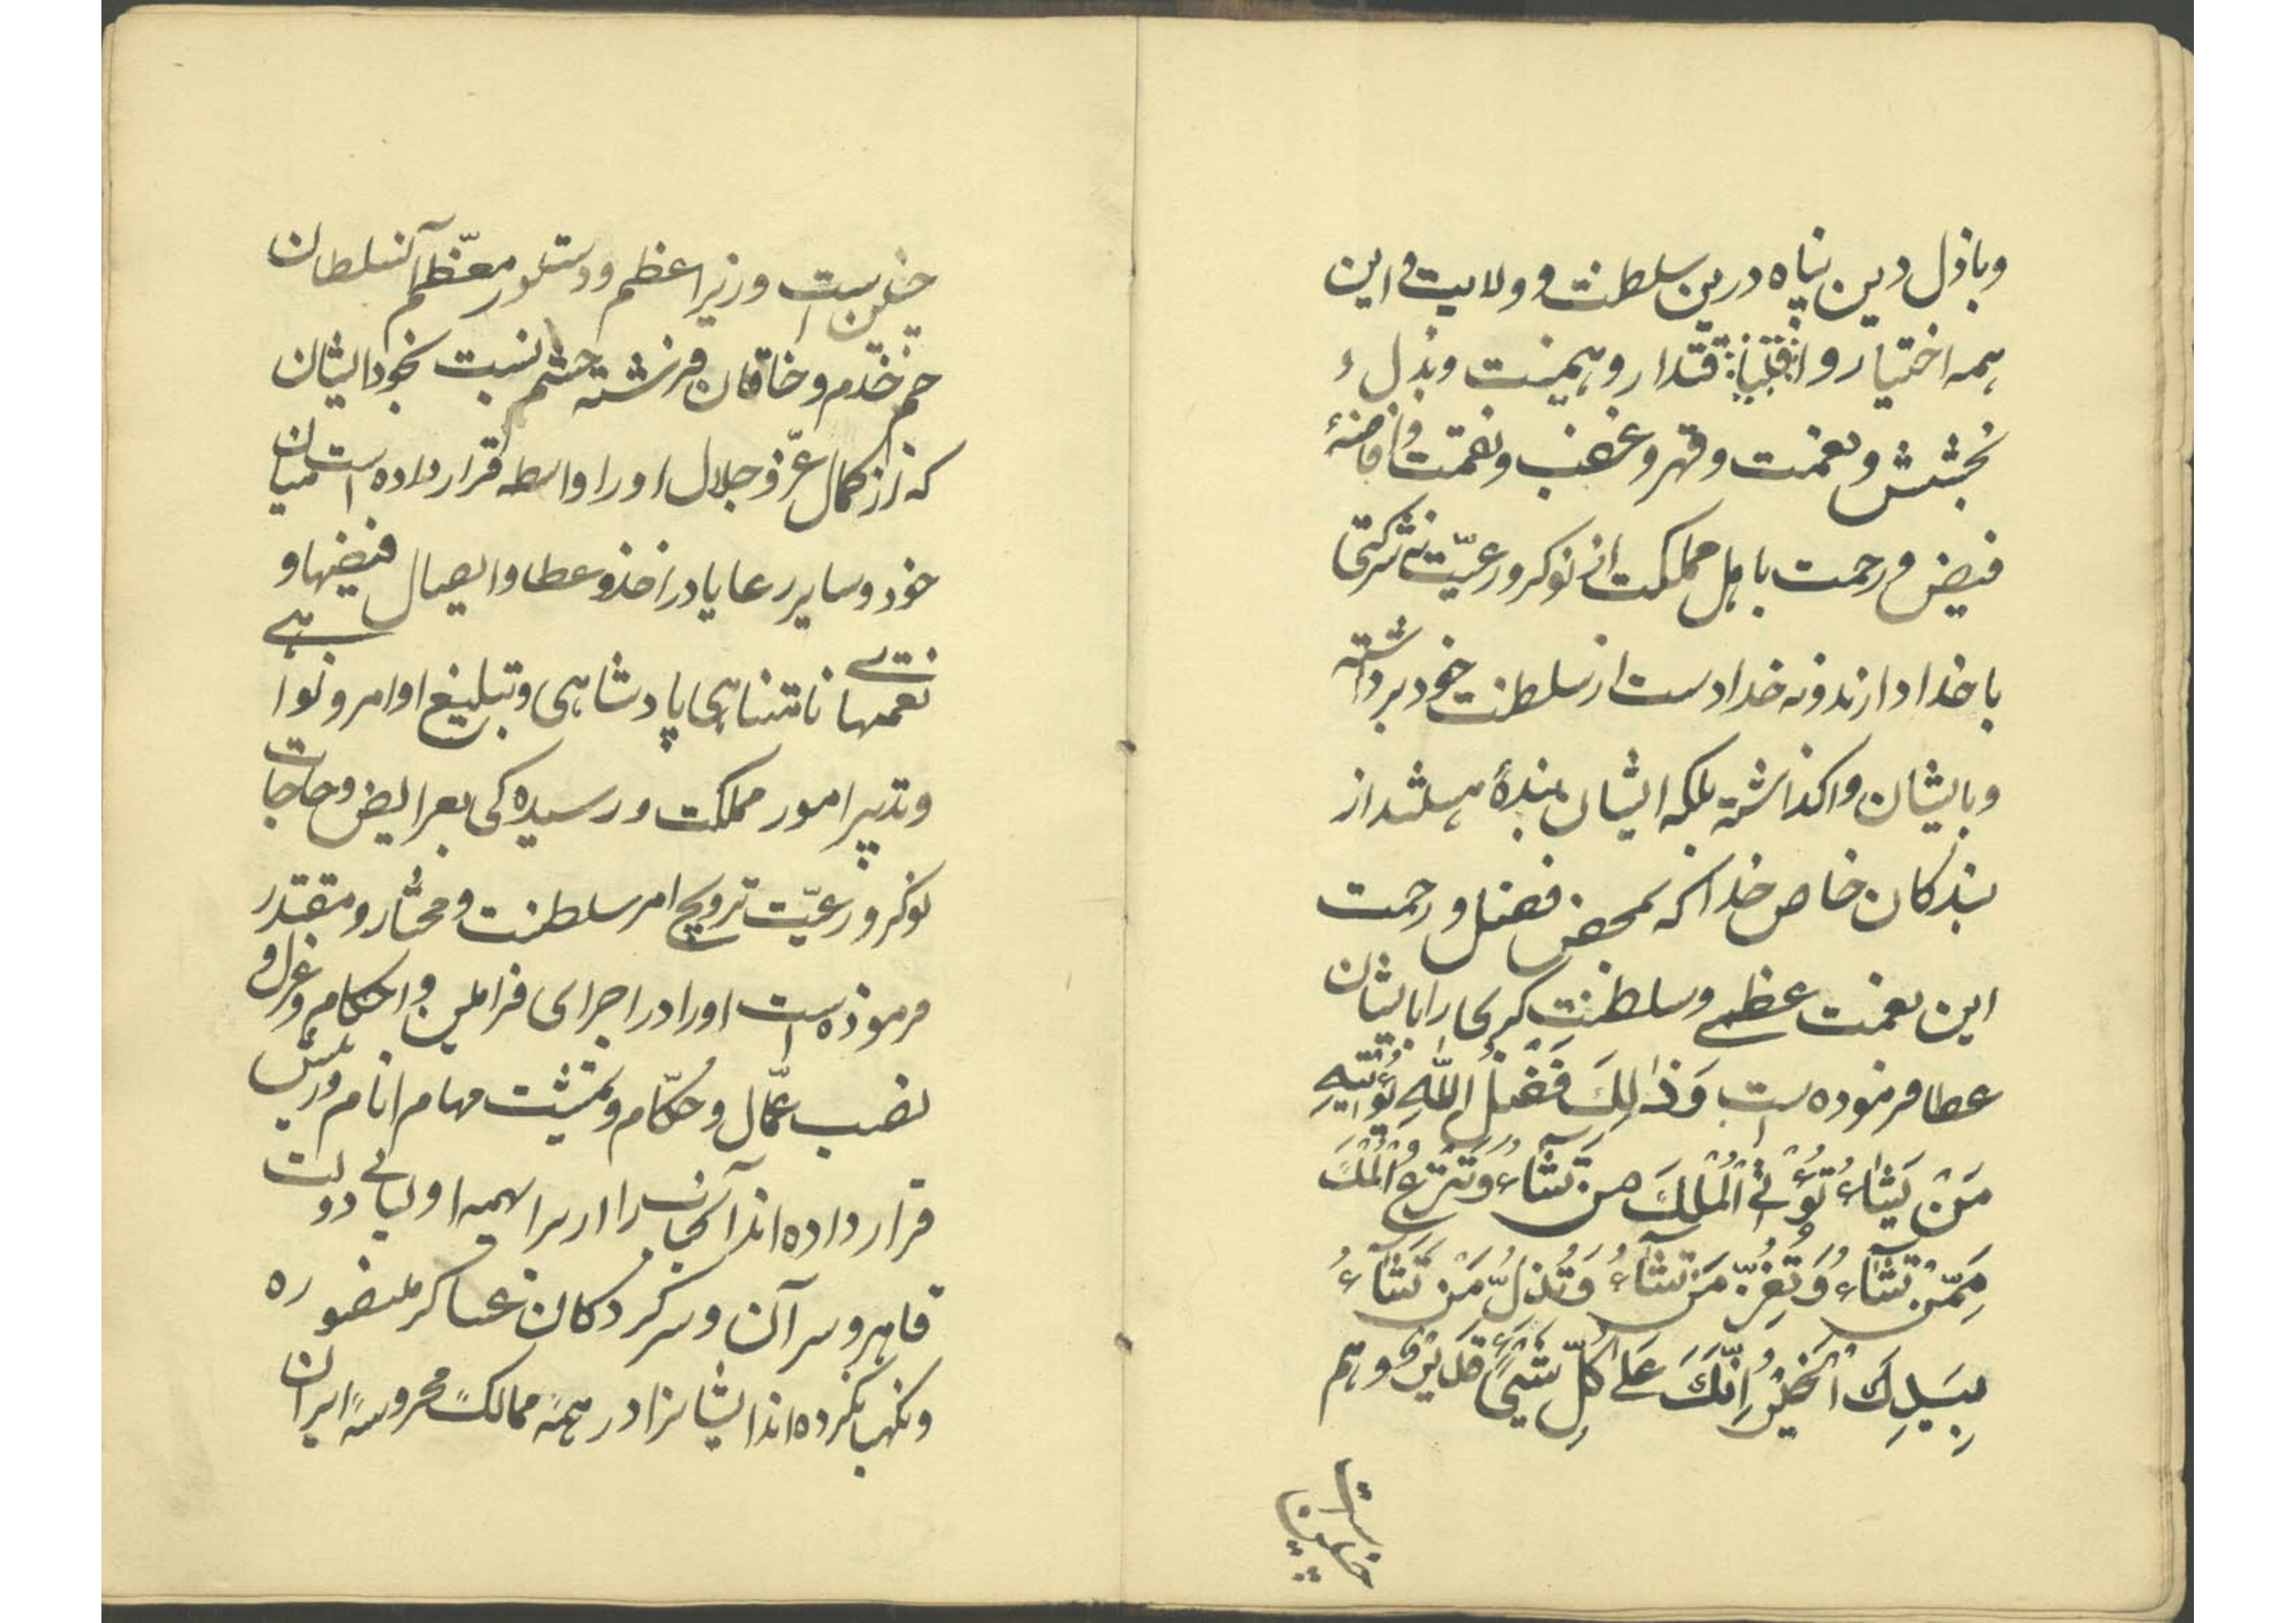 وباذل دین پناه درین سلطنت و ولایت و این
همه اختیار و اقتدار و هیمنت و بذل و
بخشش و نعمت و قهر و غضب و نقمت و افاضهٔ
فیض و رحمت باهل مملکت از نوکر و رعیّت نه شرکتی
با خدا دارند و نه خدا دست از سلطنت خود برداشته
و بایشان واکذاشته بلکه ایشان بندهٔ هستند از
بندکان خاص خدا که بمحض فضل و رحمت
این نعمت عظمی و سلطنت کبری را بایشان
عطا فرموده است وَذٰلِكَ فَضْلُ اللّٰهِ يُؤْتِيهِ
مَنْ يَشَاءُ تُؤْتِي الْمُلْكَ مَنْ تَشَآءُ وَتَنْزِعُ الْمُلْكَ
مِمَّنْ تَشَآءُ وَتُعِزُّ مَنْ تَشَآءُ وَتُذِلُّ مَنْ تَشَآءُ
بِيَدِكَ الْخَيْرُ اِنَّكَ عَلٰى كُلِّ شَيْءٍ قَدِيْرٌ و هم
چنین است
چنین است وزیر اعظم و دستور معظّم آنسلطان
جم خدم و خاقان فرشته حشم نسبت بخود ایشان
که از کمال عزّ و جلال او را واسطه قرار داده است میان
خود و سایر رعایا در اخذ و عطا و ایصال فیضها و
نعمتهای نامتناهی پادشاهی و تبلیغ اوامر و نواهی
و تدبیر امور مملکت و رسیدکی بعرایض و حاجات
نوکر و رعیّت ترویج امر سلطنت و مختار و مقتدر
فرموده است او را در اجرای فرامین و احکام و عزل و
نصب عمّال و حکّام و تمشیت مهام انام و رئیس
قرار داده اند آنجناب را از برای همه اولیای دولت
قاهره و سرآن و سرکردکان عساکر منصوره
و نکهبان کرده اند ایشانرا در همهٔ ممالک محروسهٔ ایران